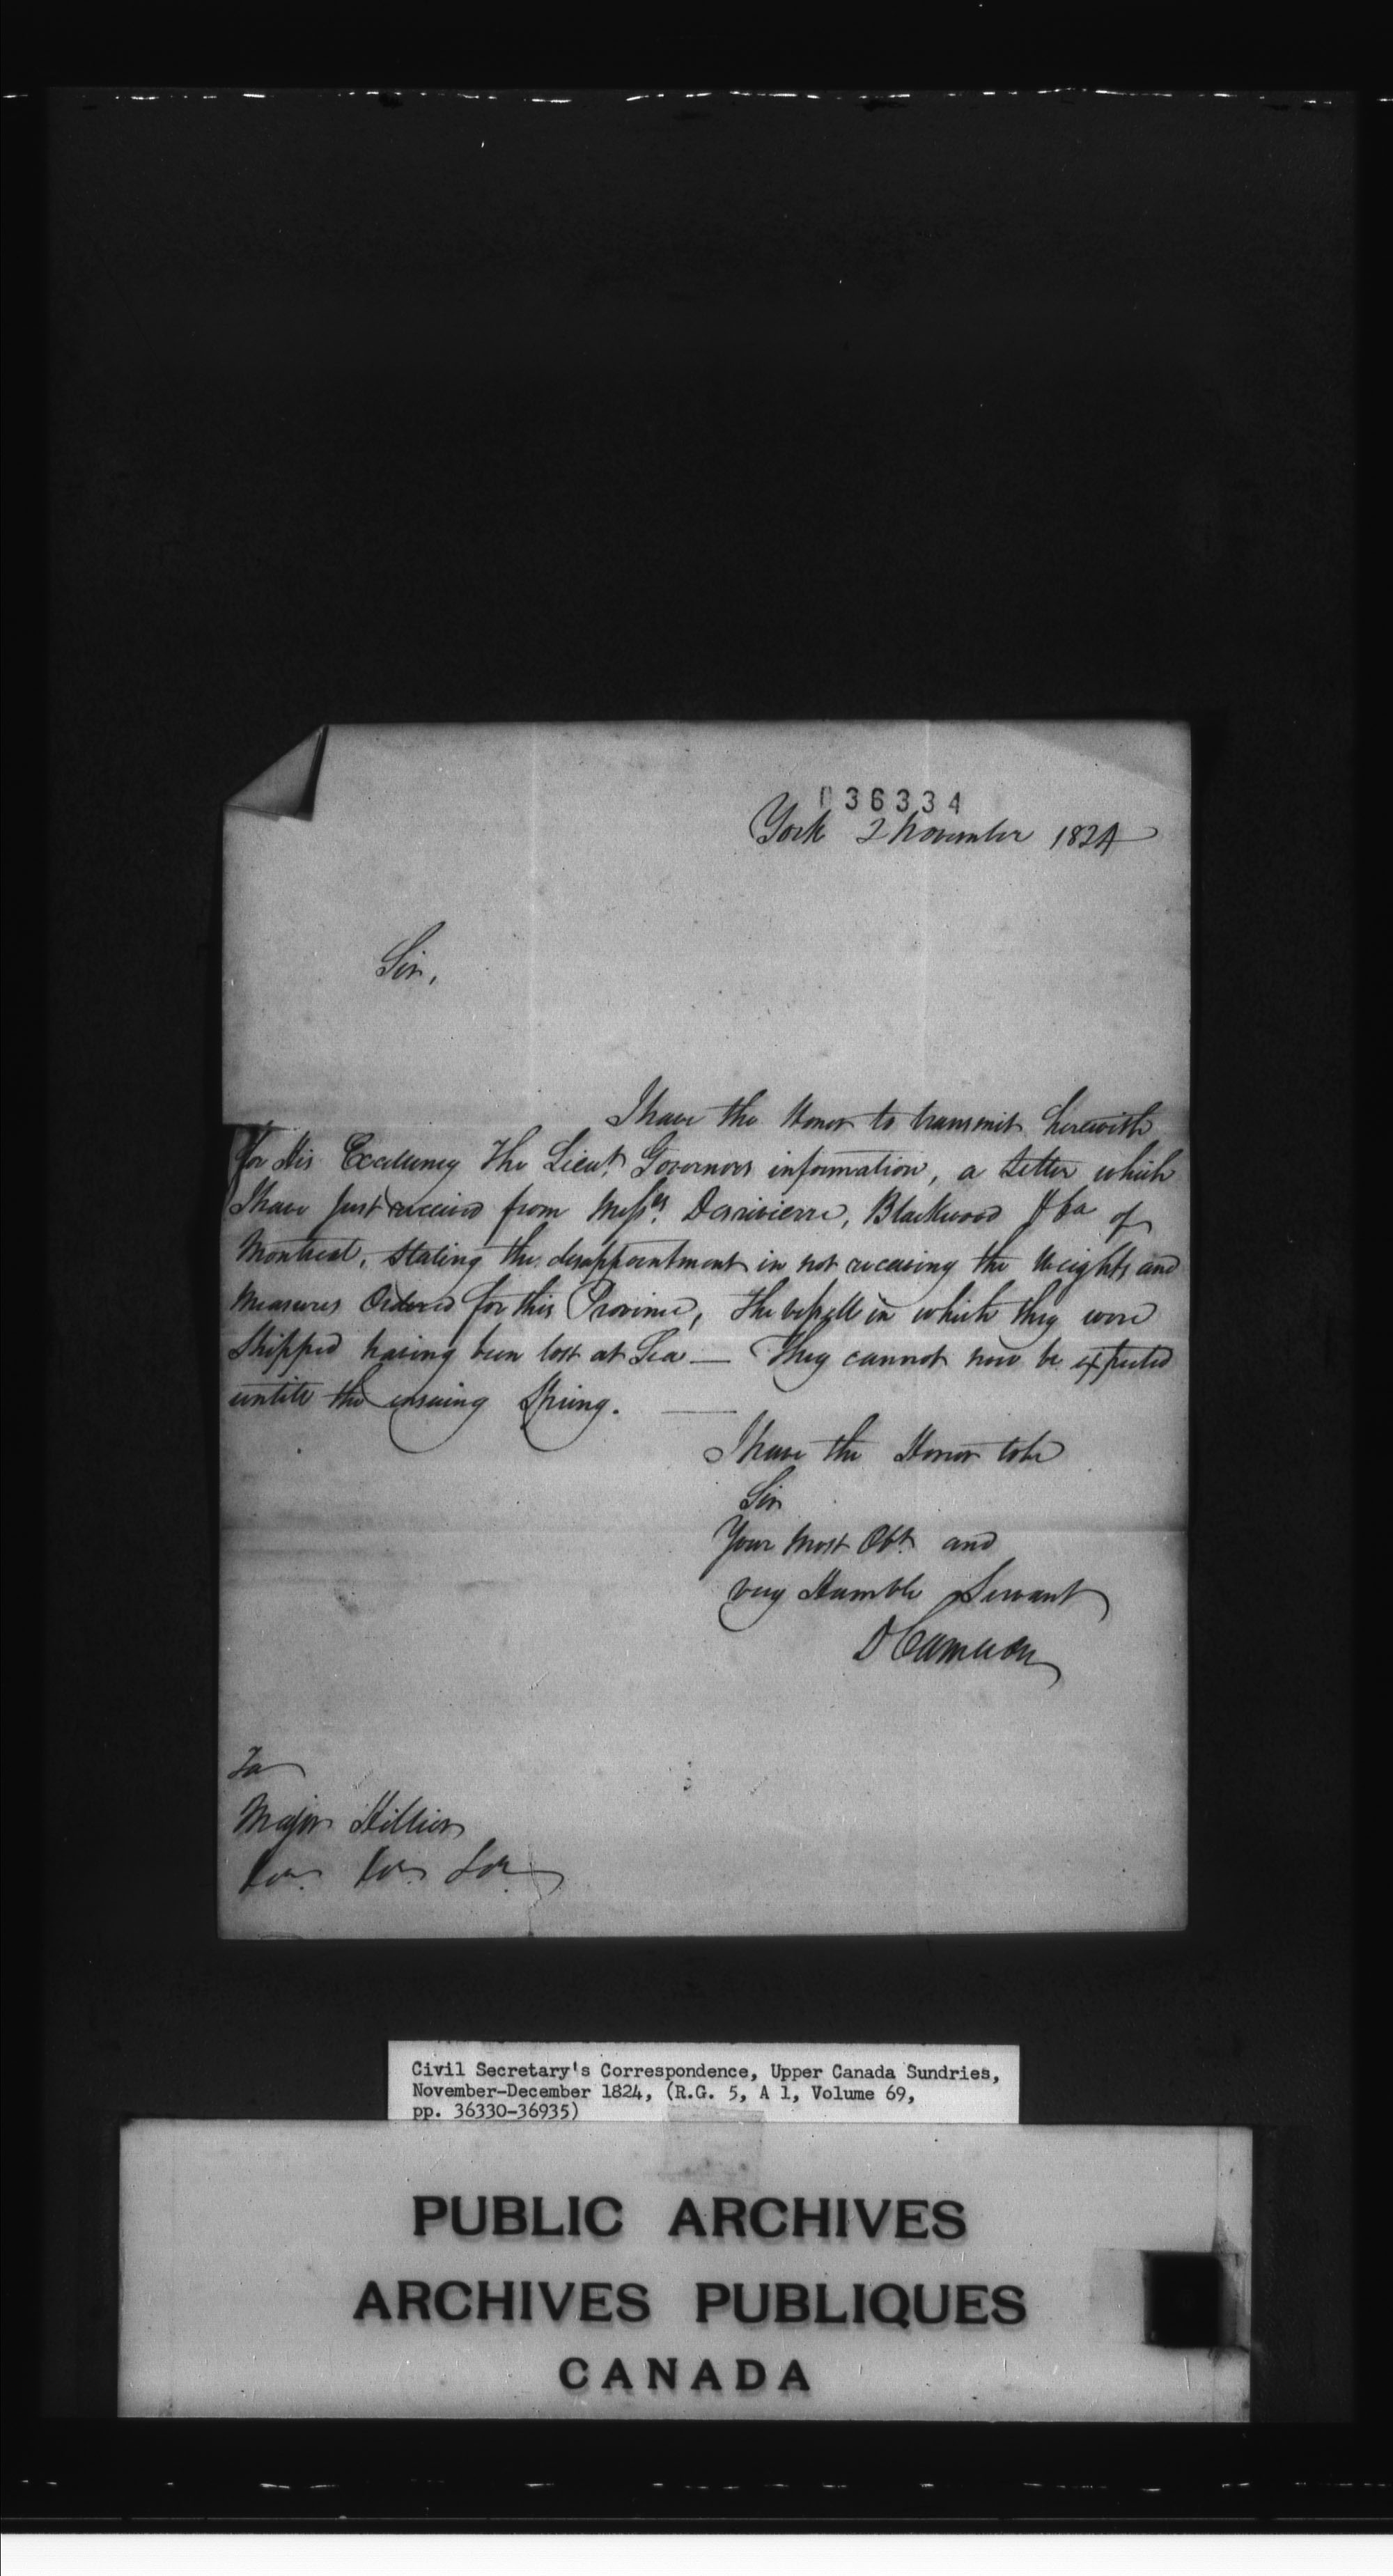 036334
York 2 November 1824
Sir,
I have the Honor to transmit herewith
for His Excellency The Lieut. Governors information, a Letter which
I have just received from Messrs. Desrivierre, Blackwood & Co of
Montreal, stating the disappointment in not receiving the Weights and
Measures Ordered for this Province, the vessell in which they were
Shipped having been lost at Sea — They cannot now be expected
untill the ensuing Spring. —
I have the Honor to be
Sir
Your Most Obt. and
very Humble Servant
D Cameron
To
Major Hillier
&c. &c. &c.
Civil Secretary's Correspondence, Upper Canada Sundries,
November-December 1824, (R.G. 5, A 1, Volume 69,
pp. 36330-36935)
PUBLIC ARCHIVES
ARCHIVES PUBLIQUES
CANADA